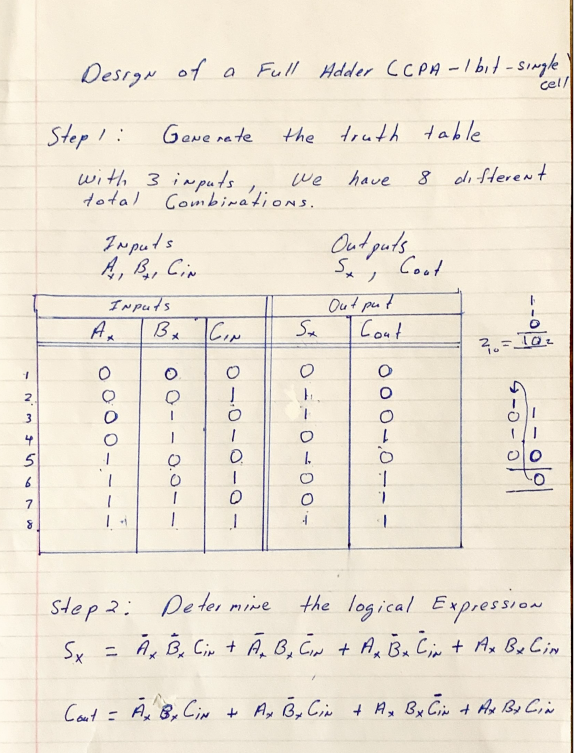 Design of a Full Adder (CPA-1bit-single cell)
Step 1: Generate the truth table
With 3 inputs, we have 8 different
total Combinations.
Inputs Outputs
Ax, Bx, CIN Sx, Cout
Inputs Output
Ax Bx CIN Sx Cout
1 0 0 0 0 0
2 0 0 1 1 0
3 0 1 0 1 0
4 0 1 1 0 1
5 1 0 0 1 0
6 1 0 1 0 1
7 1 1 0 0 1
8 1 1 1 1 1
1
1
0
2₁₀ = 10₂
1
0 1
1 1
0 0
0
Step 2: Determine the logical Expression
Sx = Āx B̄x Cin + Āx Bx C̄IN + Ax B̄x C̄in + Ax Bx Cin
Cout = Āx Bx CiN + Ax B̄x Cin + Ax Bx C̄in + Ax Bx Cin